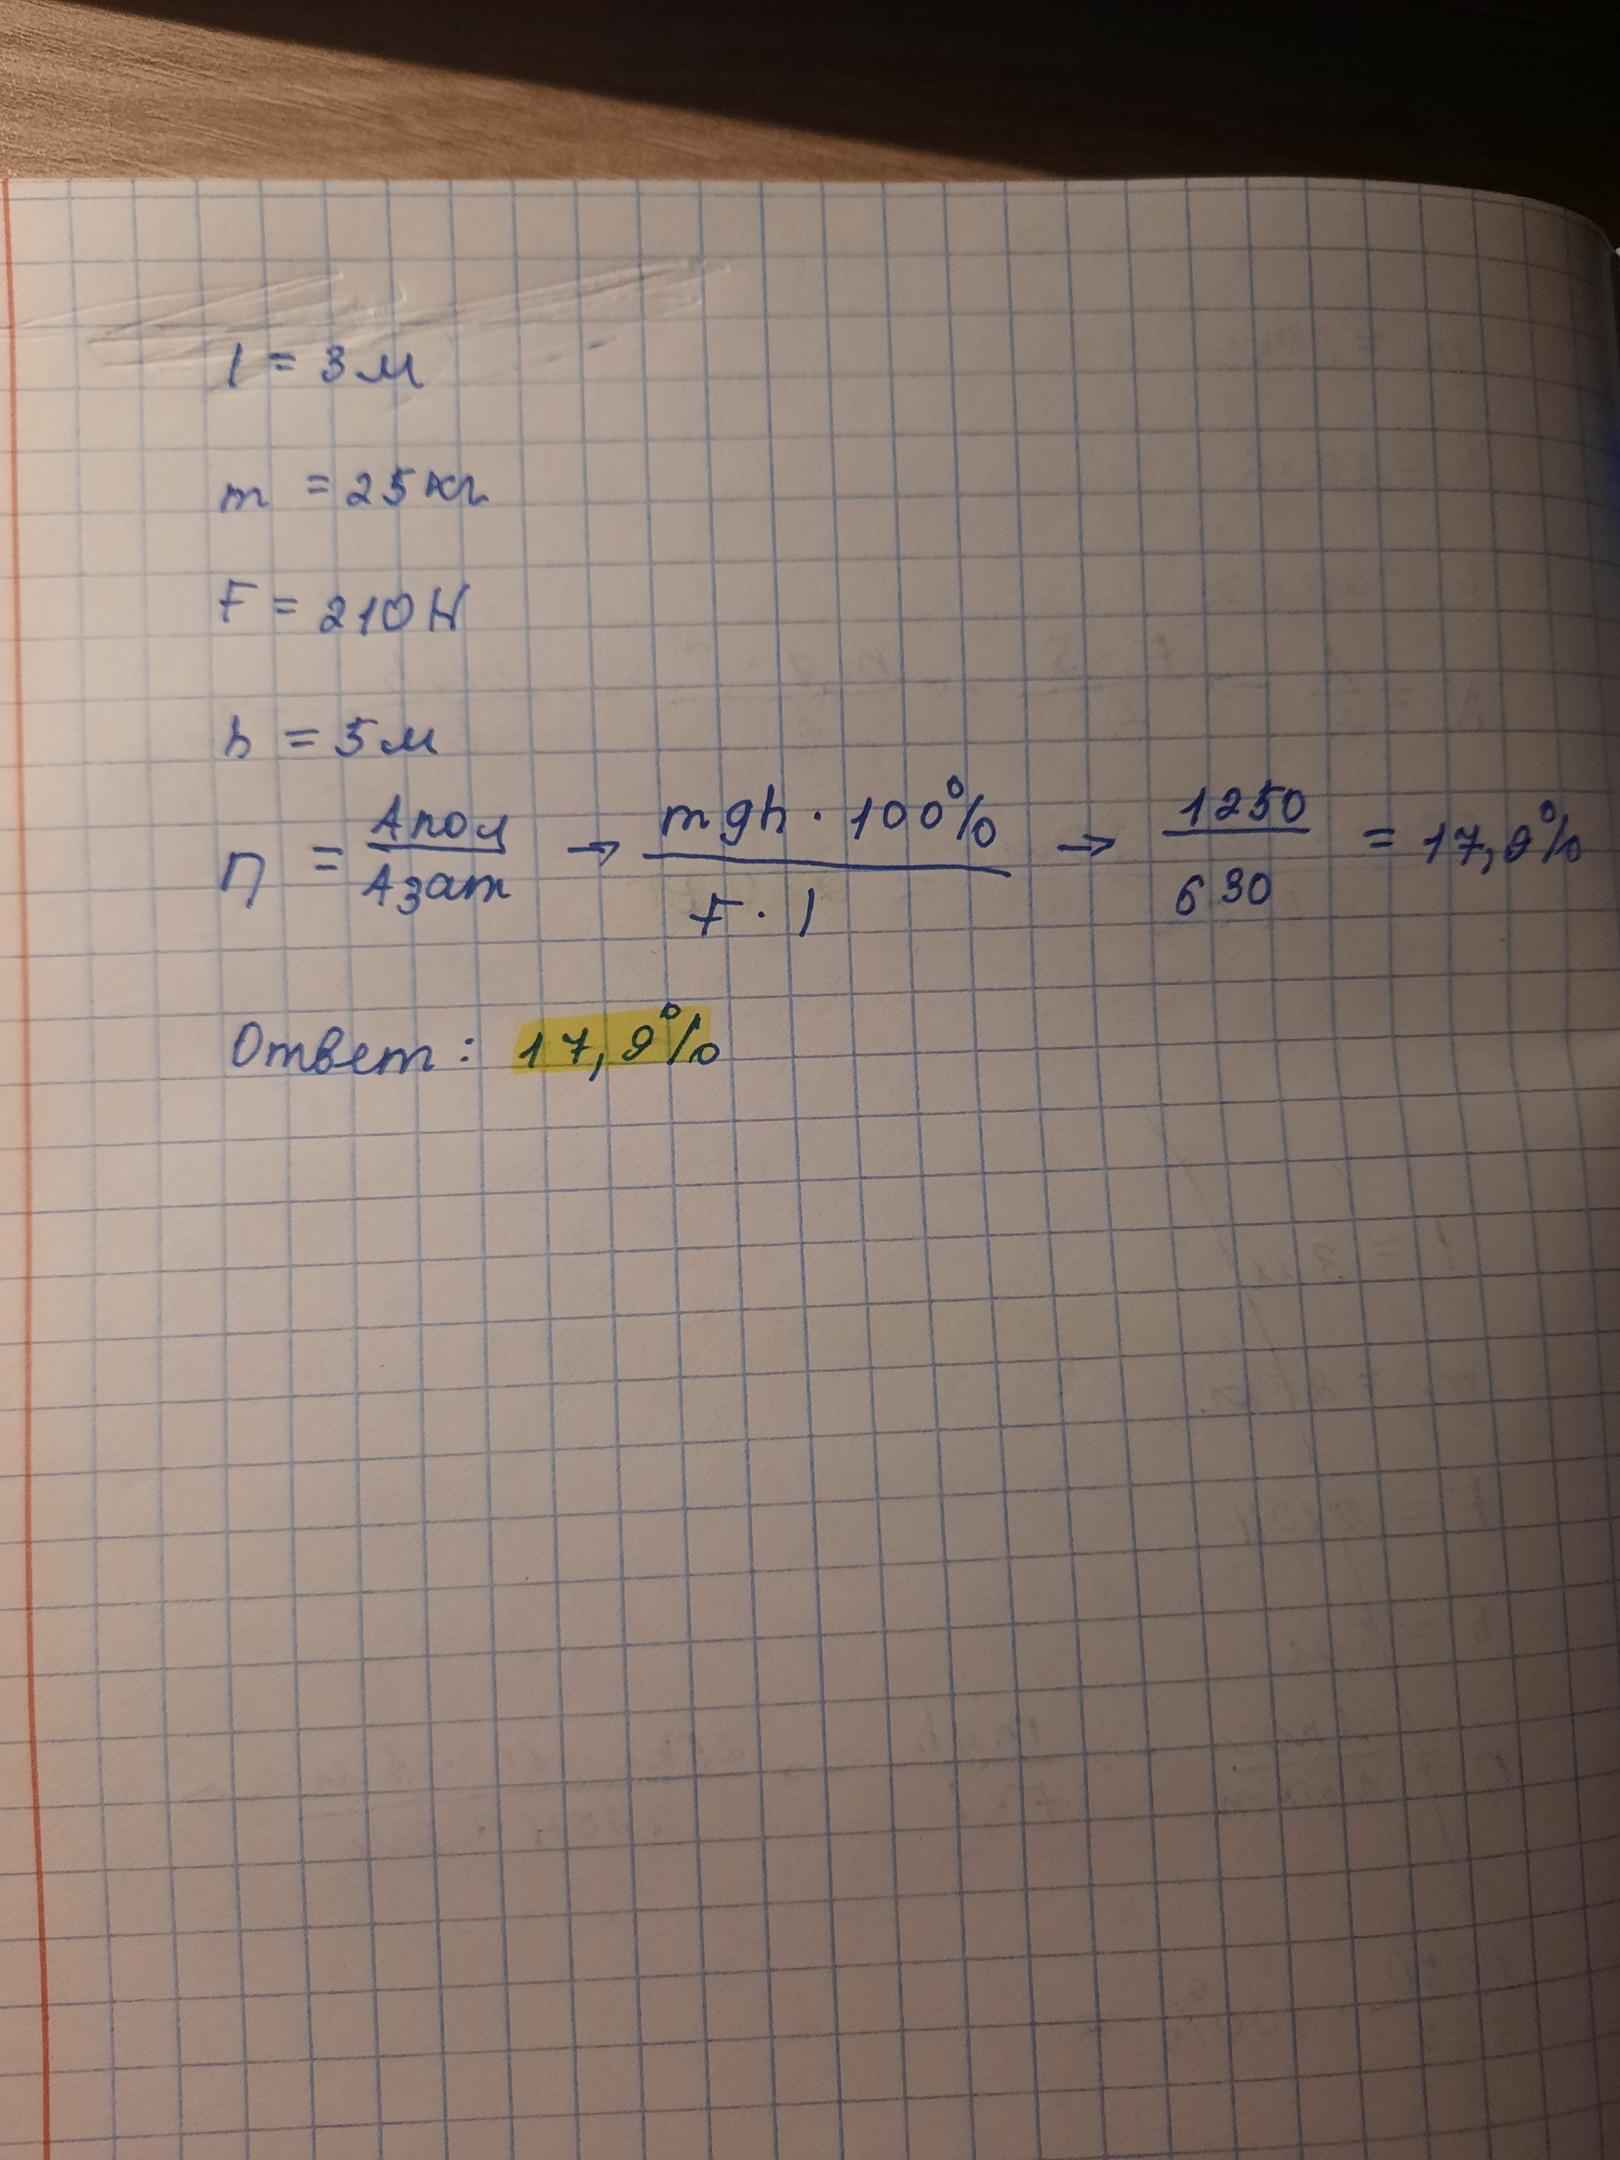 l = 3 м
m = 25 кг
F = 210 Н
h = 5 м
η = Апол / Азат → mgh · 100% / F · l → 1250 / 630 = 17,9%
Ответ: 17,9%